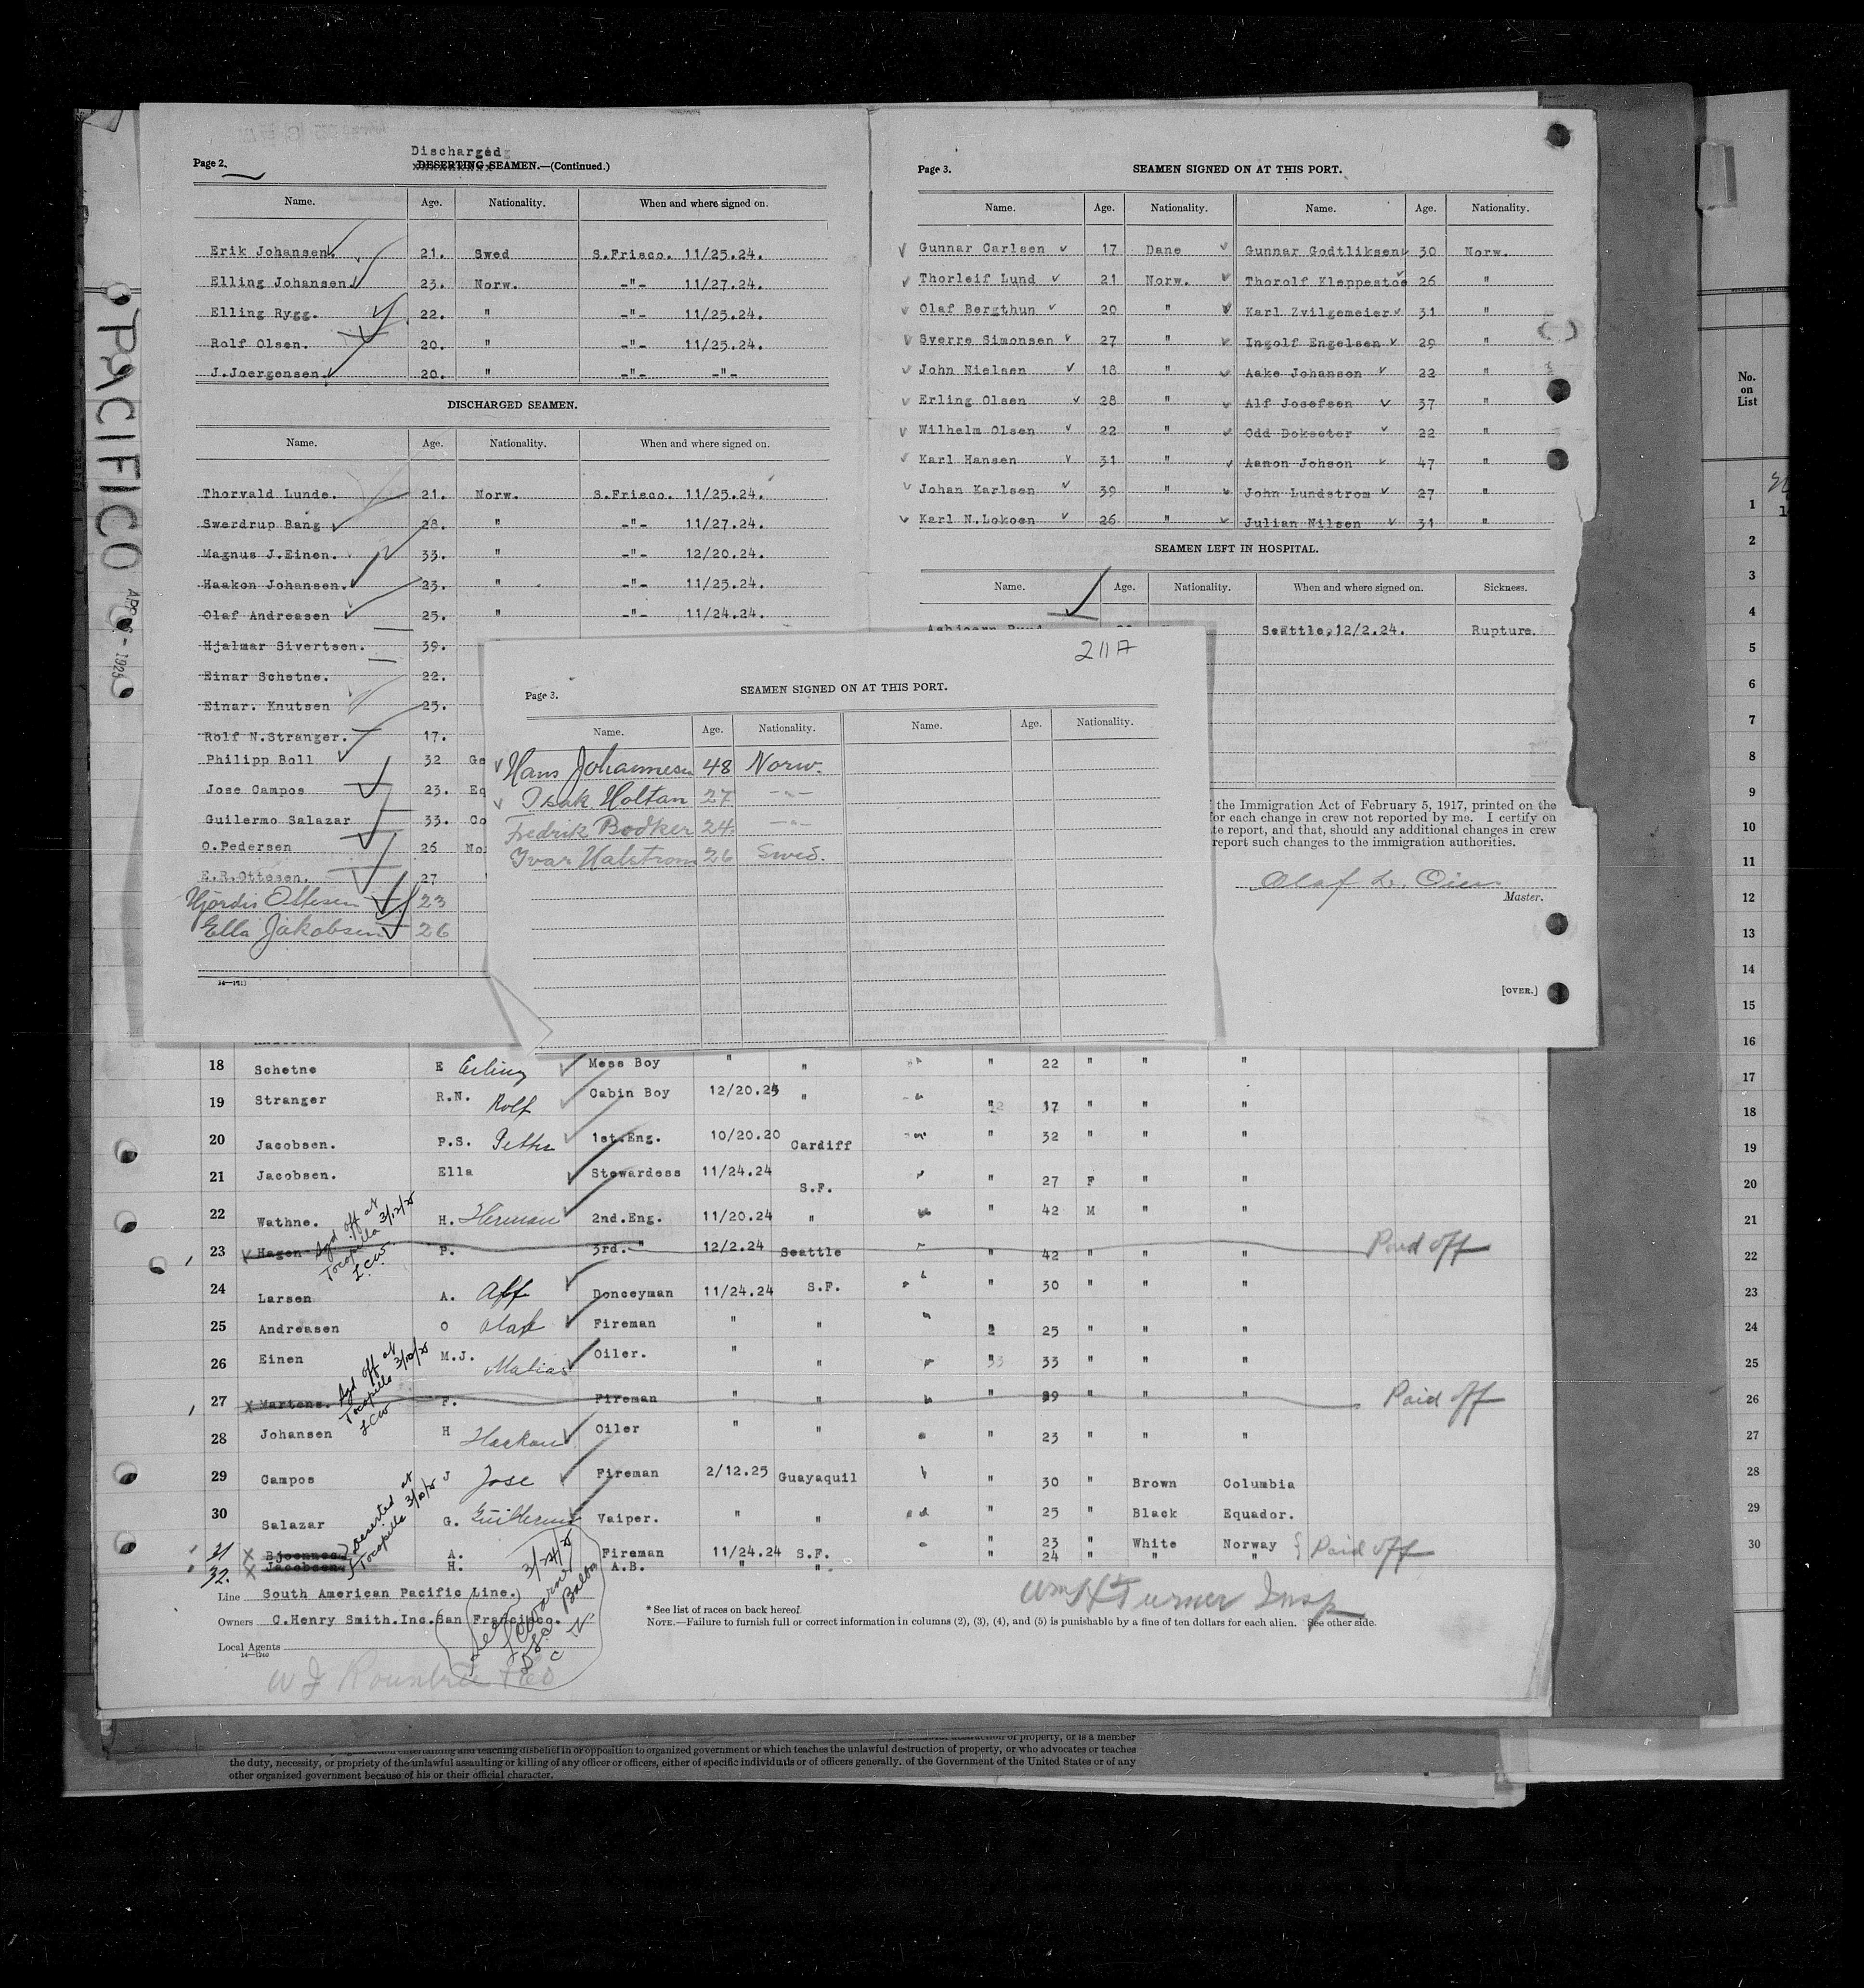 PACIFICO
APR 6 - 1925
Page 2.
Discharged
DESERTING SEAMEN.—(Continued.)
Name. Age. Nationality. When and where signed on.
Erik Johansen 21. Swed S.Frisco. 11/25.24.
Elling Johansen. 23. Norw. -"- 11/27.24.
Elling Rygg. 22. " -"- 11/25.24.
Rolf Olsen. 20. " -"- 11/25.24.
J.Joergensen. 20. " -"- -"-
DISCHARGED SEAMEN.
Name. Age. Nationality. When and where signed on.
Thorvald Lunde. 21. Norw. S.Frisco. 11/25.24.
Swerdrup Bang 28. " -"- 11/27.24.
Magnus J.Einen. 33. " -"- 12/20.24.
Haakon Johansen. 23. " -"- 11/25.24.
Olaf Andreasen 25. " -"- 11/24.24.
Hjalmar Sivertsen. 39.
Einar Schetne. 22.
Einar. Knutsen 25.
Rolf N.Stranger. 17.
Philipp Boll 32 Ge
Jose Campos 23. Eq
Guilermo Salazar 33. Co
O.Pedersen 26 No
E.R.Ottesen. 27
Hjördis Ottesen 23
Ella Jakobsen 26
Page 3.
SEAMEN SIGNED ON AT THIS PORT.
Name. Age. Nationality. Name. Age. Nationality.
Gunnar Carlsen 17 Dane Gunnar Godtliksen 30 Norw.
Thorleif Lund 21 Norw. Thorolf Kleppestoe 26 "
Olaf Bergthun 20 " Karl Zvilgemeier 31 "
Sverre Simonsen 27 " Ingolf Engelsen 29 "
John Nielsen 18 " Aake Johanson 22 "
Erling Olsen 28 " Alf Josefsen 37 "
Wilhelm Olsen 22 " Odd Dokseter 22 "
Karl Hansen 31 " Aanon Johson 47 "
Johan Karlsen 39 " John Lundstrom 27 "
Karl N.Lokoen 26 " Julian Nilsen 31 "
SEAMEN LEFT IN HOSPITAL.
Name. Age. Nationality. When and where signed on. Sickness.
Seattle,12/2.24. Rupture.
the Immigration Act of February 5, 1917, printed on the
for each change in crew not reported by me. I certify on
te report, and that, should any additional changes in crew
report such changes to the immigration authorities.
Olaf L. Oien
Master.
[OVER.]
211A
Page 3.
SEAMEN SIGNED ON AT THIS PORT.
Name. Age. Nationality. Name. Age. Nationality.
Hans Johannesen 48 Norw.
Isak Holtan 27 -"-
Fredrik Bodker 24. -"-
Ivar Halstrom 26 Swed.
18 Schetne E Erling Mess Boy " " " 22 " " "
19 Stranger R.N. Rolf Cabin Boy 12/20.24 " " 17 " " "
20 Jacobsen. P.S. Petter 1st.Eng. 10/20.20 Cardiff " 32 " " "
21 Jacobsen. Ella Stewardess 11/24.24 S.F. " 27 F " "
22 Wathne. H. Herman 2nd.Eng. 11/20.24 " " 42 M " "
23 Hagen Sgd off at Tocopilla 3/12/25 L.C.W. P. 3rd. " 12/2.24 Seattle " 42 " " " Paid off
24 Larsen A. Alf Donceyman 11/24.24 S.F. " 30 " " "
25 Andreasen O Olaf Fireman " " " 25 " " "
26 Einen M.J. Matias Oiler. " " " 33 " " "
27 Martens. Sgd off at Tocopilla 3/10/25 LCW F. Fireman " " " 39 " " " Paid off
28 Johansen H Haakon Oiler " " " 23 " " "
29 Campos J Jose Fireman 2/12.25 Guayaquil " 30 " Brown Columbia
30 Salazar G. Guillermo Vaiper. " " " 25 Black Equador.
31 Bjoennes A. Fireman 11/24.24 S.F. " 23 White Norway
32. Jacobsen. H. A.B. " " " 24 " " Paid off
Deserted at Tocopilla 3/10/25
Line South American Pacific Line.
Owners C.Henry Smith.Inc.San Francisco.
Local Agents
14—1240
*See list of races on back hereof.
NOTE.—Failure to furnish full or correct information in columns (2), (3), (4), and (5) is punishable by a fine of ten dollars for each alien. See other side.
Wm H Turner Insp
entertaining and teaching disbelief in or opposition to organized government or which teaches the unlawful destruction of property, or who advocates or teaches
the duty, necessity, or propriety of the unlawful assaulting or killing of any officer or officers, either of specific individuals or of officers generally. of the Government of the United States or of any
other organized government because of his or their official character.
No. on List
1
2
3
4
5
6
7
8
9
10
11
12
13
14
15
16
17
18
19
20
21
22
23
24
25
26
27
28
29
30